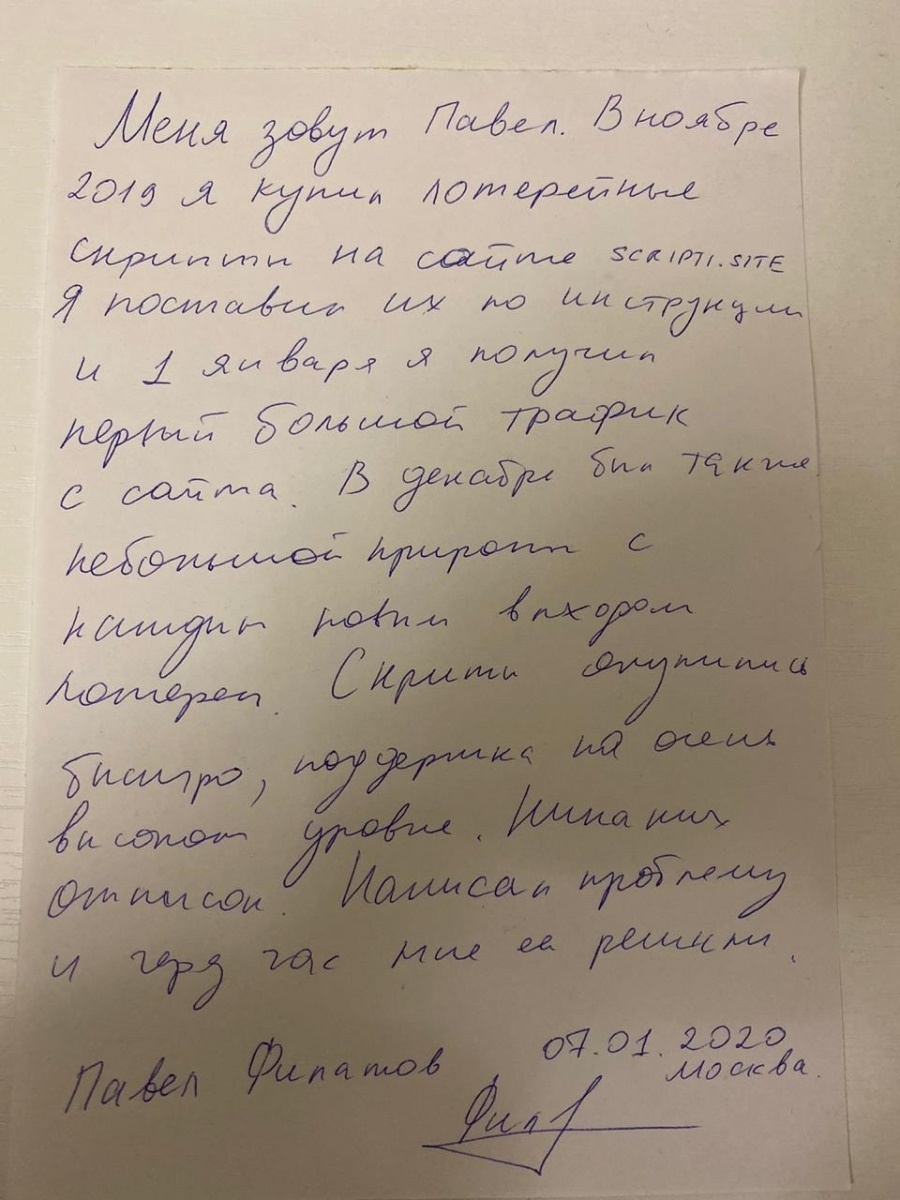 Меня зовут Павел. В ноябре
2019 я купил лотерейные
скрипты на сайте SCRIPTI.SITE
Я поставил их по инструкции
и 1 января я получил
первый большой трафик
с сайта. В декабре был также
небольшой прирост с
каждым новым выходом
лотереи. Скрипты окупились
быстро, поддержка на очень
высоком уровне. Никаких
отписок. Написал проблему
и через час мне ее решили.
Павел Филатов 07.01.2020
Москва.
Фил